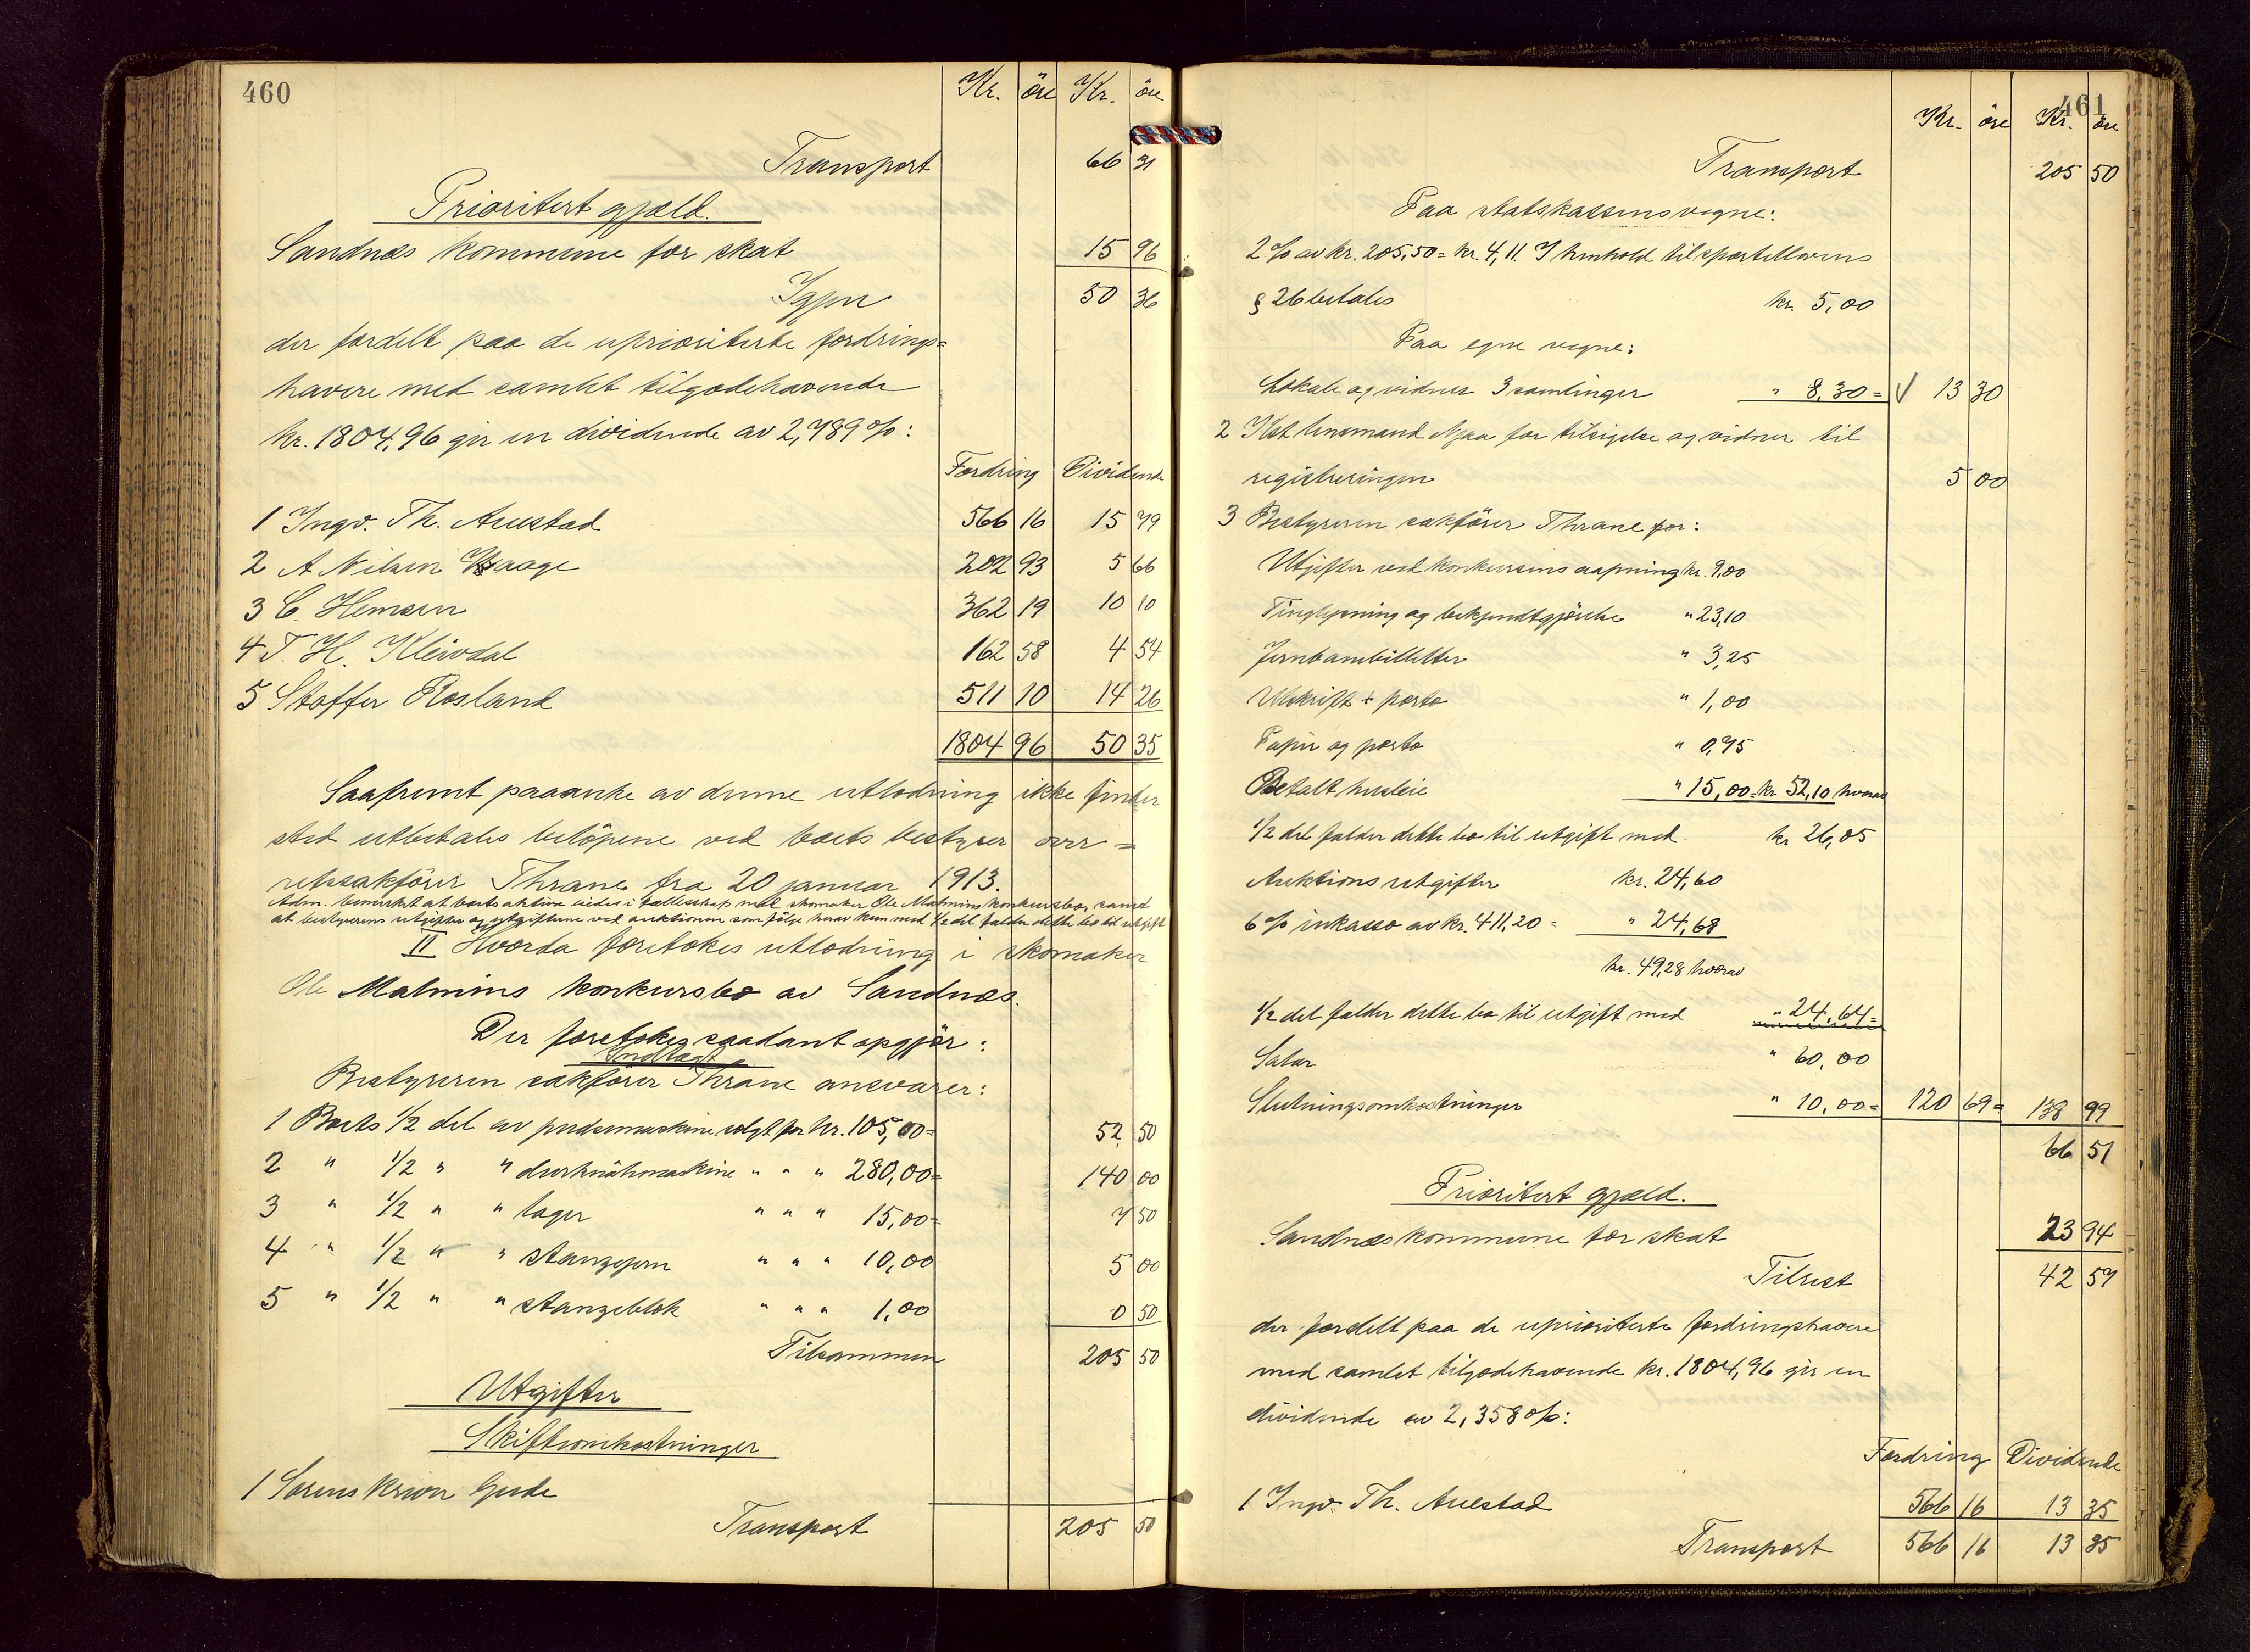 460
Kr. öre Kr. öre
Transport 66 31
Prioritert gjæld.
Sandnæs kommune for skat 15 96
Igjen 50 36
der fordelt paa de uprioriterte fordrings=
havere med samlet tilgodehavende
kr. 1804,96 gir en dividende av 2,789 %:
Fordring Dividende
1 Ingv. Th. Auestad 566 16 15 79
2 A Nilsen Haage 202 93 5 66
3 C. Hemsen 362 19 10 10
4 T. H. Kleivdal 162 58 4 54
5 Stoffer Rosland 511 10 14 26
1804 96 50 35
Saafremt paaanke av denne utlodning ikke finder
sted utbetales belöpene ved boets bestyrer over=
retssakförer Thrane fra 20 januar 1913.
Adm. bemerket at boets aktiva eides i fællesskap med skomaker Ole Malmins konkursbo, samt
at bestyrerens utgifter og utgiftene ved auktionen som følge herav kun med 1/2 del falder dette bo til utgift
II Hvorda foretokes utlodning i skomaker
Ole Malmins konkursbo av Sandnæs.
Der foretokes saadant opgjör:
Indtægt
Bestyreren sakförer Thrane ansvarer:
1 Boets 1/2 del av pudsemaskine solgt for kr. 105,00= 52 50
2 " 1/2 " " durknähmaskine " " " 280,00= 140 00
3 " 1/2 " " lager " " " 15,00= 7 50
4 " 1/2 " " stanzejern " " " 10,00 5 00
5 " 1/2 " " stanzeblok " " " 1,00 0 50
Tilsammen 205 50
Utgifter
Skifteomkostninger
1 Sorenskriver Gude
Transport 205 50
461
Kr. öre Kr. öre
Transport 205 50
Paa statskassens vegne:
2 % av kr. 205,50 = kr. 4,11. I henhold til sportellovens
§ 26 betales kr. 5,00
Paa egne vegne:
Lokale og vidner 3 samlinger " 8,30= √ 13 30
2 Kst lensmand Njaa for tilsigelse og vidner til
registreringen 5 00
3 Bestyreren sakförer Thrane for:
Utgifter ved konkursens aapning kr. 9,00
Tinglysning og bekjendtgjörelse " 23,10
Jernbanebilletter " 3,25
Utskrift + porto " 1,00
Papir og porto " 0,75
Betalt husleie " 15,00= kr 52,10 hvorav
1/2 del falder dette bo til utgift med kr 26,05
Auktions utgifter kr. 24,60
6 % inkasso av kr. 411,20 = " 24,68
kr. 49,28 hvorav
1/2 del falder dette bo til utgift med " 24,64=
Salær " 60,00
Slutningsomkostninger " 10,00= 120 69= 138 99
66 51
Prioritert gjæld.
Sandnæs kommune for skat 23 94
Tilrest 42 57
der fordelt paa de uprioriterte fordringshavere
med samlet tilgodehavende kr. 1804,96 gir en
dividende av 2,358 %:
Fordring Dividende
1 Ingv. Th. Auestad 566 16 13 35
Transport 566 16 13 35